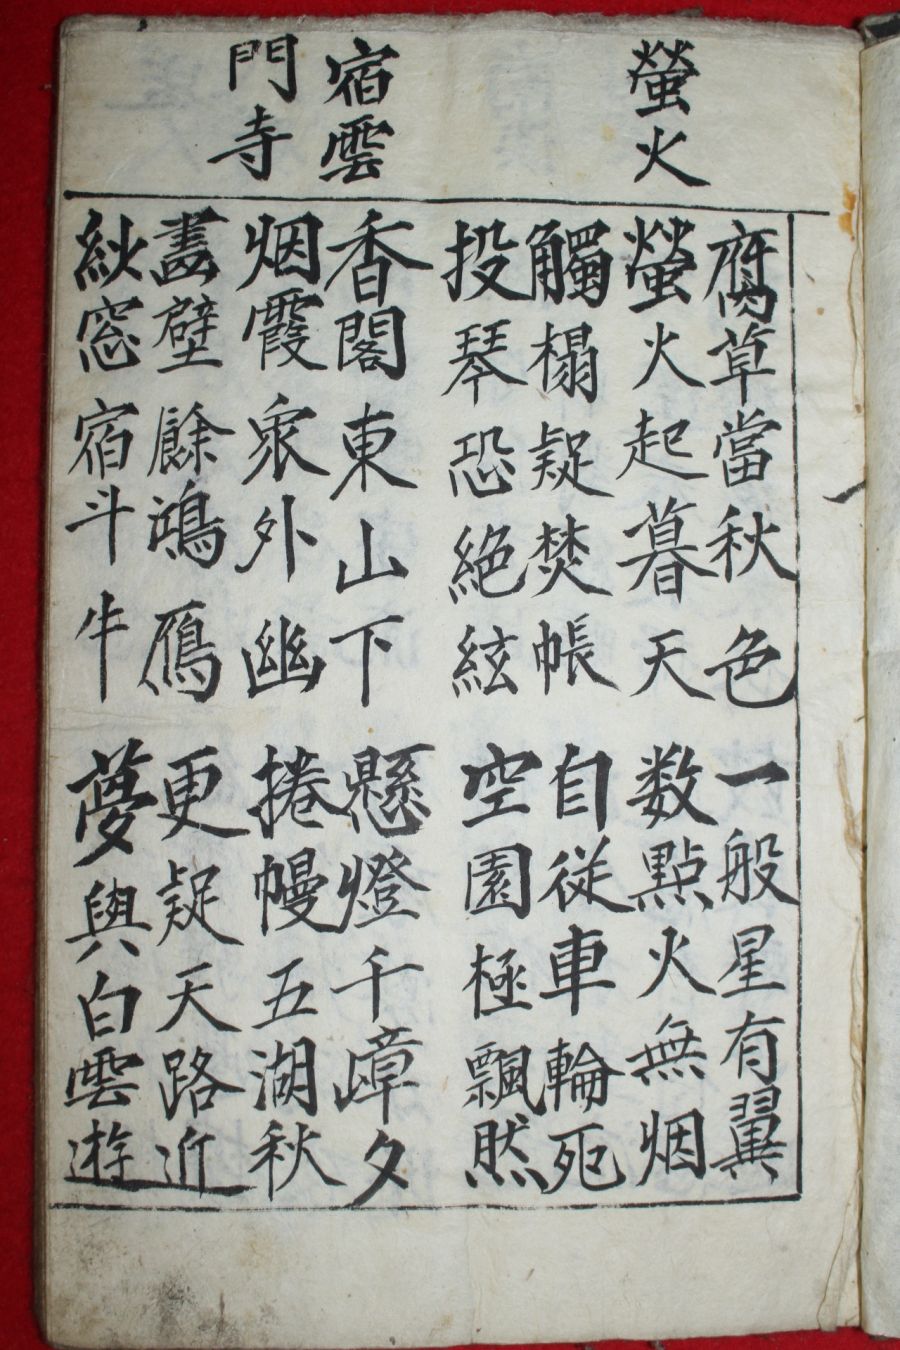 螢火
腐草當秋色 一般星有翼
螢火起暮天 数點火無烟
觸榻疑焚帳 自従車輪死
投琴恐絶絃 空園極飄然
宿雲
門寺
香閣東山下 懸燈千嶂夕
烟霞衆外幽 捲幔五湖秋
畵壁餘鴻鴈 更疑天路近
紗窓宿斗牛 夢與白雲遊